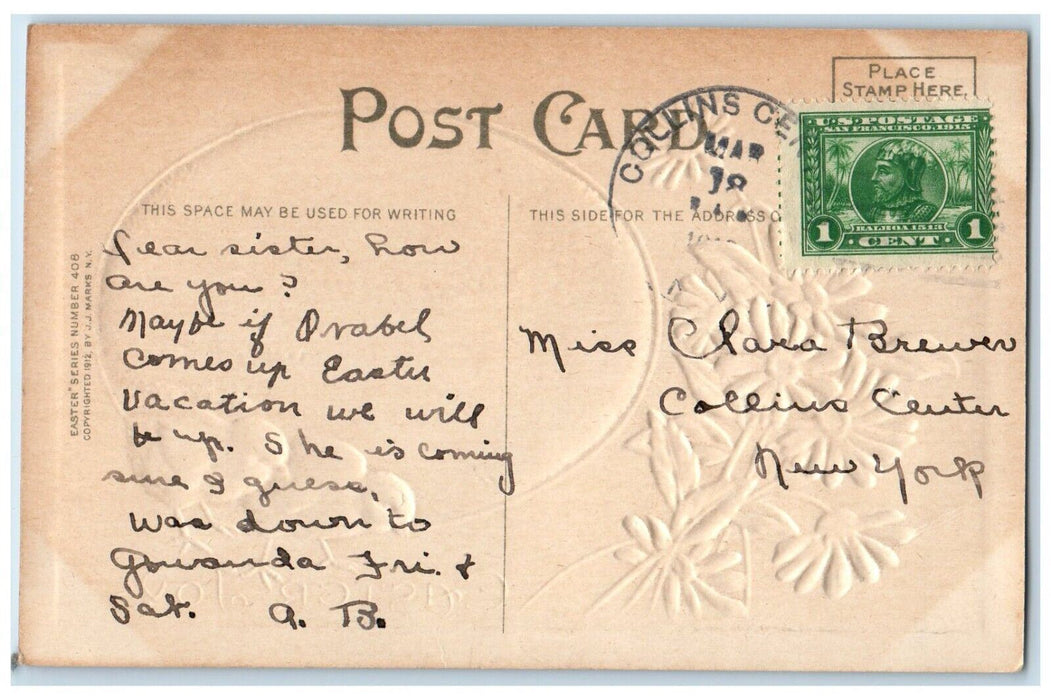 PLACE
STAMP HERE.
POST CARD
COLLINS CE
MAR
18
U.S. POSTAGE
SAN FRANCISCO, 1915
BALBOA 1513
1 CENT 1
THIS SPACE MAY BE USED FOR WRITING
THIS SIDE FOR THE ADDRESS O
EASTER SERIES NUMBER 408
COPYRIGHTED 1912, BY J.J. MARKS N.Y.
Dear sister, how
are you?
Maybe if
comes up Easter
vacation we will
be up. She is coming
sure I guess.
Was down to
Gowanda Fri. &
Sat. A. B.
Miss Clara Brewer
Collins Center
New York